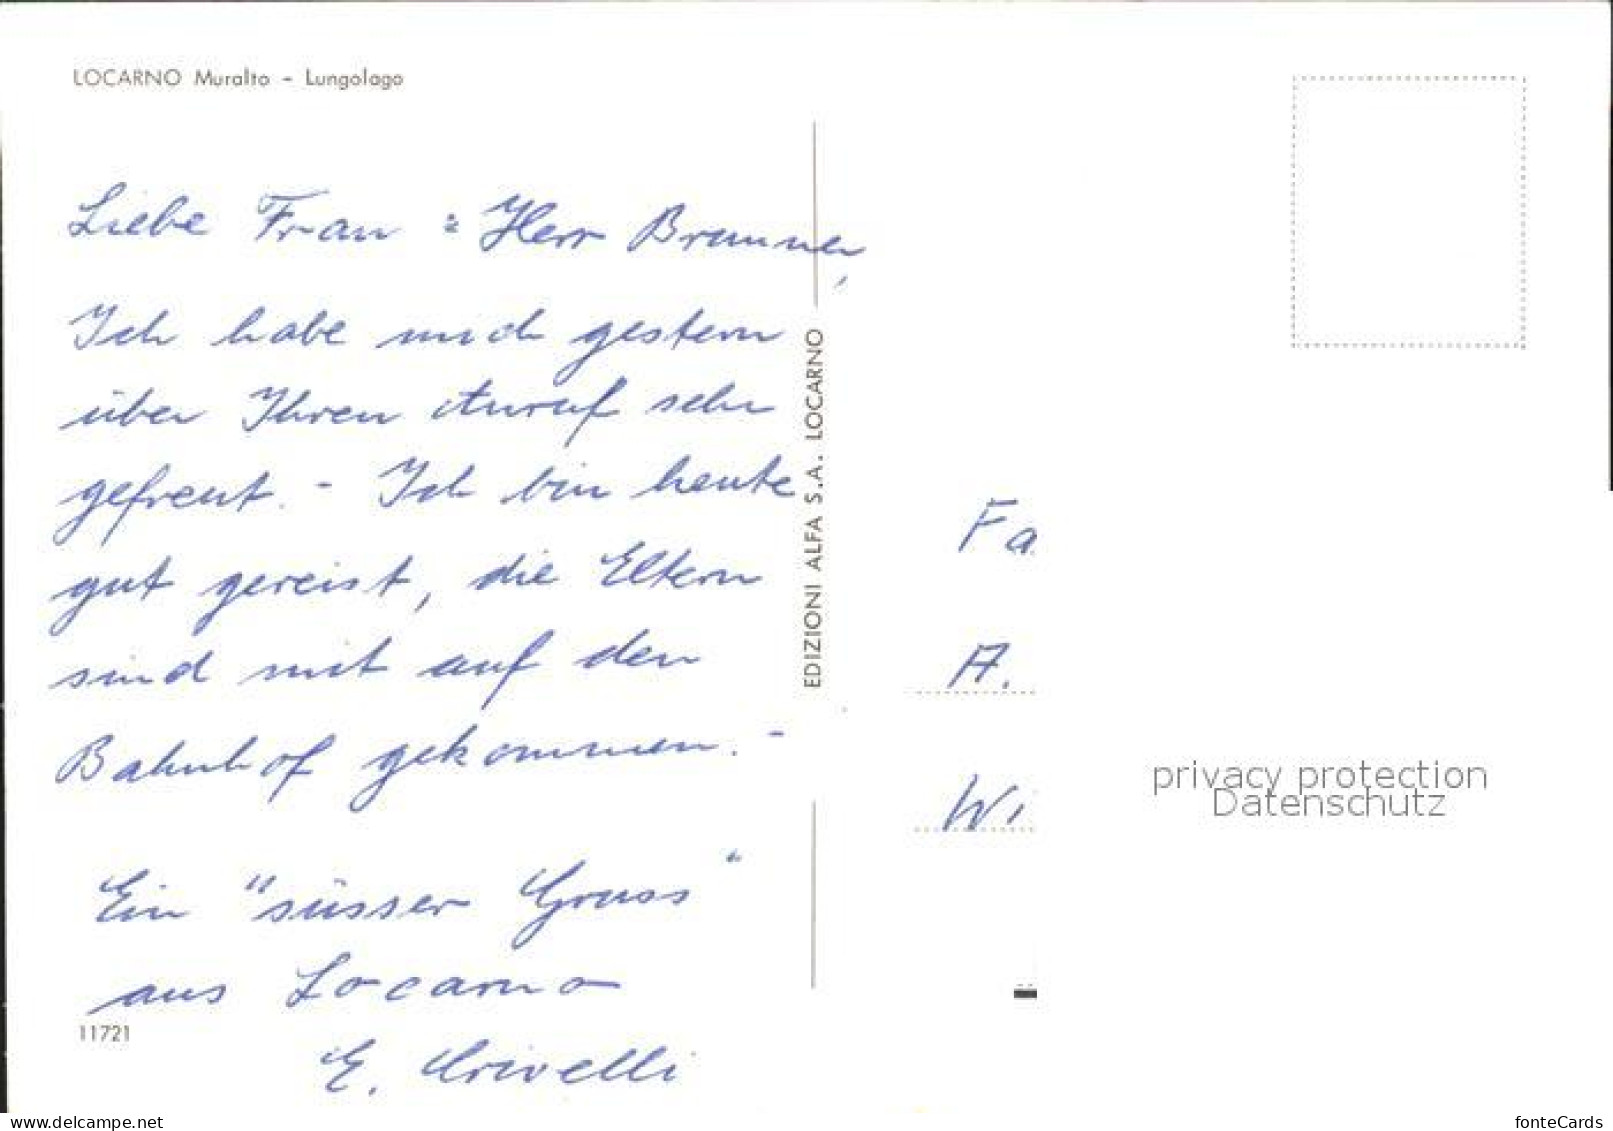 LOCARNO Muralto – Lungolago
Liebe Frau = Herr Brunner,
Ich habe mich gestern
über Ihren Anruf sehr
gefreut. - Ich bin heute
gut gereist, die Eltern
sind mit auf den
Bahnhof gekommen. -
Ein "süsser Gruss"
aus Locarno
E. Crivelli
11721
EDIZIONI ALFA S.A. LOCARNO
Fa
A.
Wi
privacy protection
Datenschutz
www.delcampe.net
fonteCards